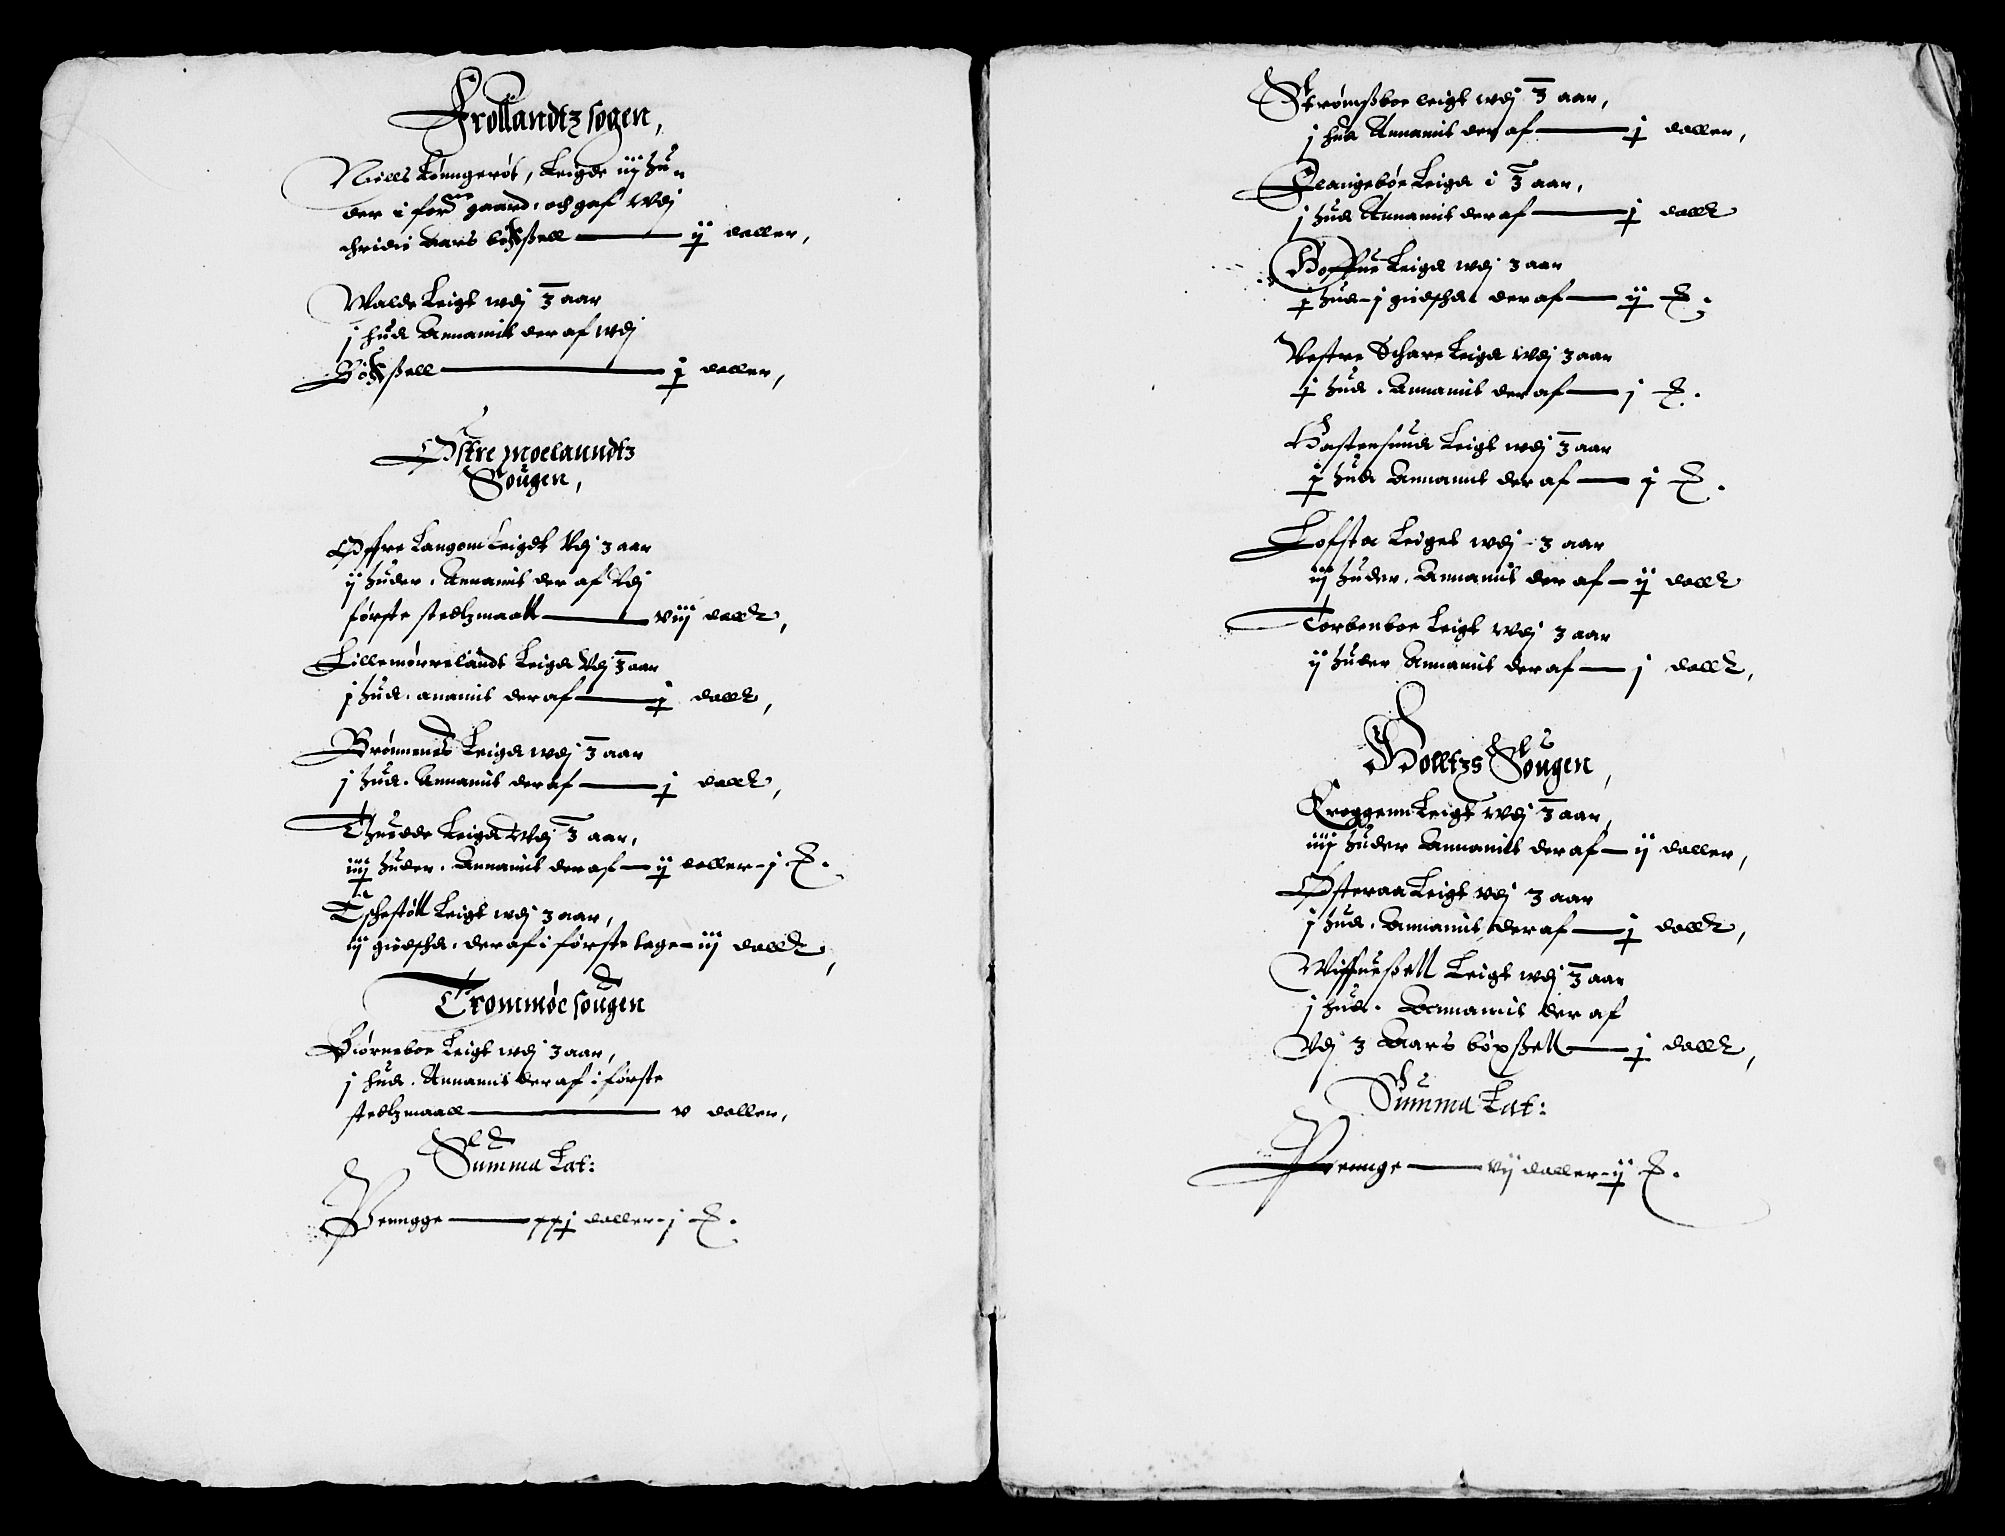 Frøllandtz sogen,
Niells Lønngerøs, Leigde iij hu¬
der i for:ne gaard, och gaf wdj
thridie Aars bøxsell — ij daller,
Walde Leigt wdj 3 aar
j hud Annamit der af wdj
Bøxsell — j daller,
Østre moelanndtz
Sougen,
Øffre Langom Leigdt Vdj 3 aar
ij huder. Annamit der af Vdj
første stedtzmaall — viij dallr,
Lillemørrelandt Leigd Vdj 3 aar
j hud. anamit der af — j dallr,
Brønnenes Leigd wdj 3 aar
j hud. Annamit der af — j dallr,
Thuedde Leigd Vdj 3 aar,
iiij huder. Annamit der af — ij daller - j ℔.
Leigt wdj 3 aar,
ij giedschd. der af i første tage - iij dallr,
Trommøe sougen
Biørneboe Leigt wdj 3 aar,
j hud. Annamit der af i første
stedtzmaall — v daller,
Summa Lat:
Penngge — xxj daller - j ℔.
Strømsboe leigt wdj 3 aar,
j hud Annamit der af — j daller,
Flangebøe Leigd i 3 aar,
j hud Annamit der af — j dallr
Hoffue Leigd wdj 3 aar
j hud - j giedschd. der af — ij ℔.
Vestre Schare Leigd wdj 3 aar
j hud. Annamit der af — j ℔.
Hastensund Leigt wdj 3 aar
j hud Annamit der af — j ℔.
Lofsta Leiget wdj - 3 aar
iij huder. Annamit der af — ij dallr
Torbenboe Leigt wdj 3 aar
ij huder Annamit der af — j dallr,
Holltzs Sougen,
Kroggenn Leigt wdj 3 aar,
iiij huder Annamit der af — ij daller,
Østeraa Leigt vdj 3 aar
j hud. Annamit der af — j dallr,
Wiffuesell Leigt wdj 3 aar
j hud. Annamit der af
Vdj 3 Aars bøxsell — j dallr,
Summa Lat:
Pennge — vij daller - ij ℔.